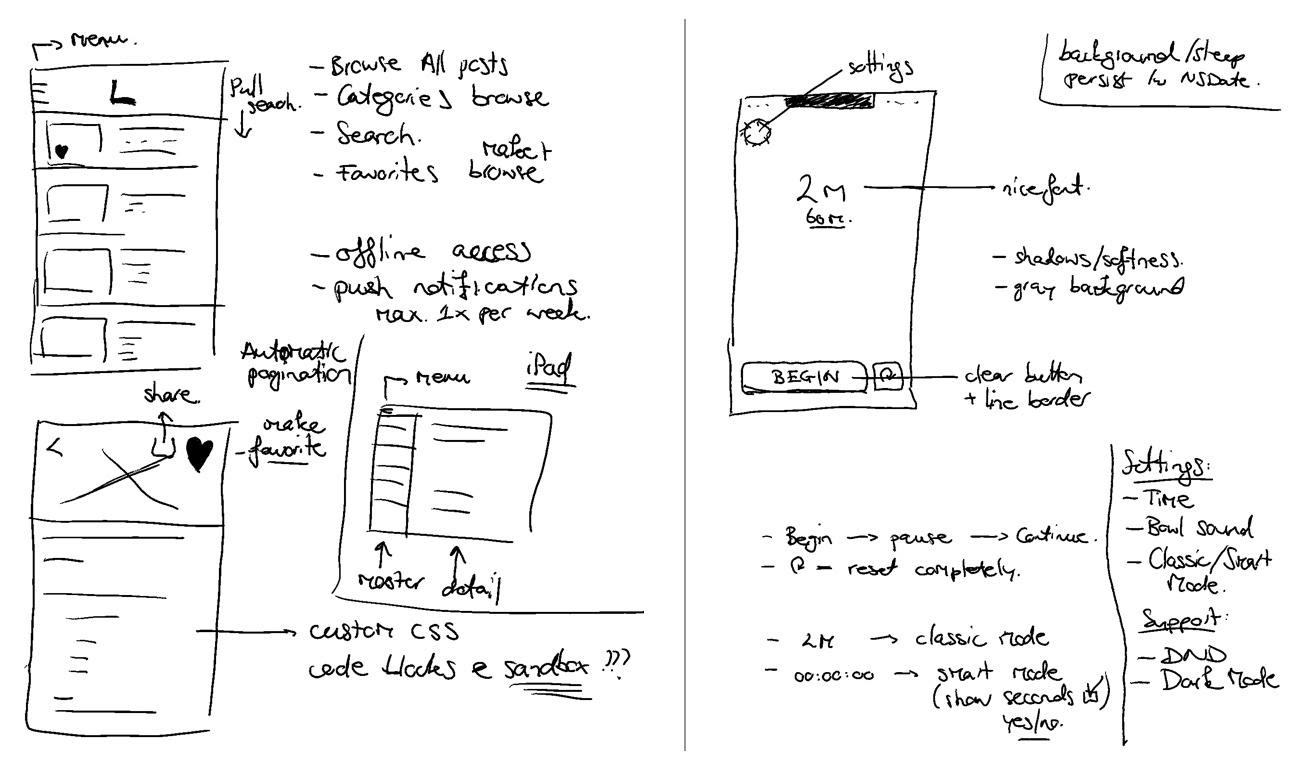 menu.
L
Pull
search.
- Browse All posts
- Categories browse
- Search.
- Favorites browse
- offline access
- push notifications
max. 1x per week.
Automatic
pagination
share.
make
- favorite
iPad
menu
master
detail
custom CSS
code blocks e sandbox ???
settings
background/sleep
persist in NSDate.
2M
60M.
nice font.
- shadows/softness.
- gray background
BEGIN
clear button
+ line border
- Begin → pause → Continue.
- reset completely.
- 2M → classic mode
- 00:00:00 → smart mode
(show seconds)
yes/no.
Settings:
- Time
- Bowl sound
- Classic/Smart
Mode.
Support:
- DND
- Dark Mode